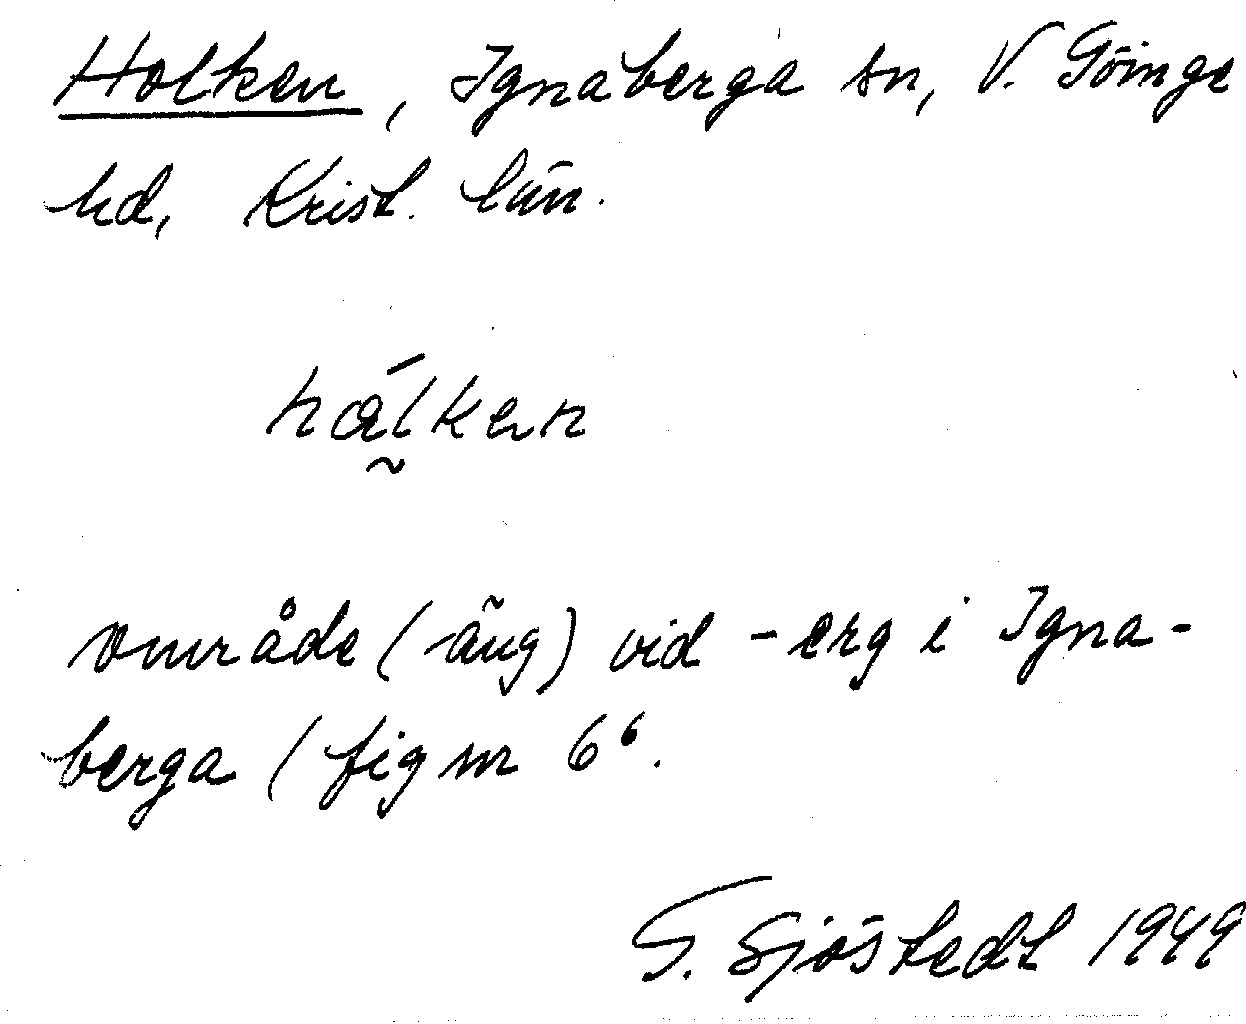 Holken, Ignaberga sn, V. Göinge
hd, Krist. län.
hålken
område (äng) vid -erg i Igna-
berga / fig nr 6⁶.
G. Sjöstedt 1949